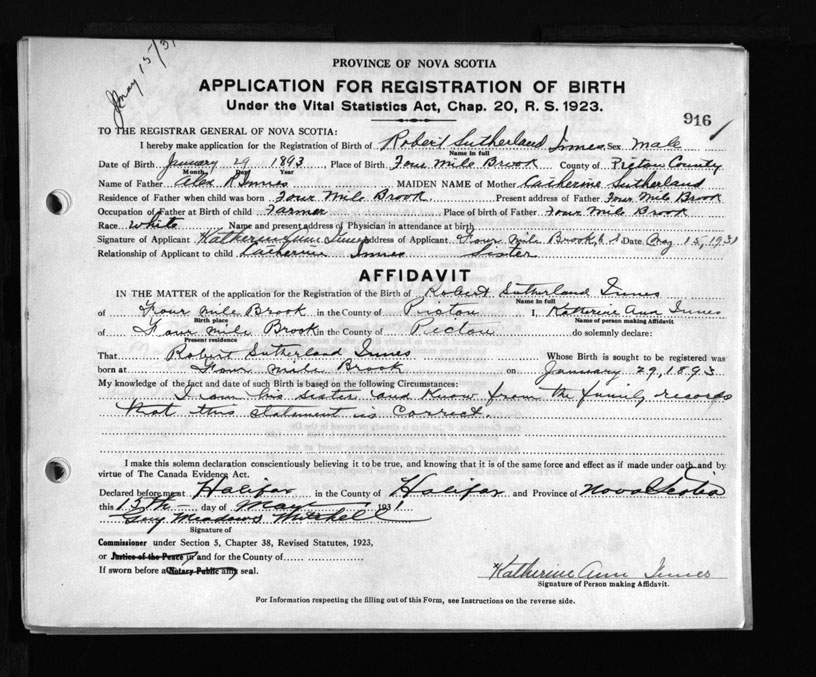 May 15/31
PROVINCE OF NOVA SCOTIA
APPLICATION FOR REGISTRATION OF BIRTH
Under the Vital Statistics Act, Chap. 20, R. S. 1923.
916
TO THE REGISTRAR GENERAL OF NOVA SCOTIA:
I hereby make application for the Registration of Birth of Robert Sutherland Innes Sex Male
Name in full
Date of Birth January 29 1893 Place of Birth Four Mile Brook County of Pictou County
Month Day Year
Name of Father Alex R Innes MAIDEN NAME of Mother Catherine Sutherland
Residence of Father when child was born Four Mile Brook Present address of Father Four Mile Brook
Occupation of Father at Birth of child Farmer Place of birth of Father Four Mile Brook
Race White Name and present address of Physician in attendance at birth
Signature of Applicant Katherine Ann Innes address of Applicant Four Mile Brook, Date May 15, 1931
Relationship of Applicant to child Catherine Innes Sister
AFFIDAVIT
IN THE MATTER of the application for the Registration of the Birth of Robert Sutherland Innes
Name in full
of Four Mile Brook in the County of Pictou I, Katherine Ann Innes
Birth place Name of person making Affidavit
of Four Mile Brook in the County of Pictou do solemnly declare:
Present residence
That Robert Sutherland Innes Whose Birth is sought to be registered was
born at Four Mile Brook on January 29, 1893
My knowledge of the fact and date of such Birth is based on the following Circumstances:
I am his sister and know from the family records
that this statement is correct.
I make this solemn declaration conscientiously believing it to be true, and knowing that it is of the same force and effect as if made under oath and by
virtue of The Canada Evidence Act.
Declared before me at Halifax in the County of Halifax and Province of Nova Scotia
this 15th day of May 1931
Guy Meadows Mitchell
Signature of
Commissioner under Section 5, Chapter 38, Revised Statutes, 1923,
or Justice of the Peace in and for the County of
If sworn before a Notary Public affix seal.
Katherine Ann Innes
Signature of Person making Affidavit.
For Information respecting the filling out of this Form, see Instructions on the reverse side.